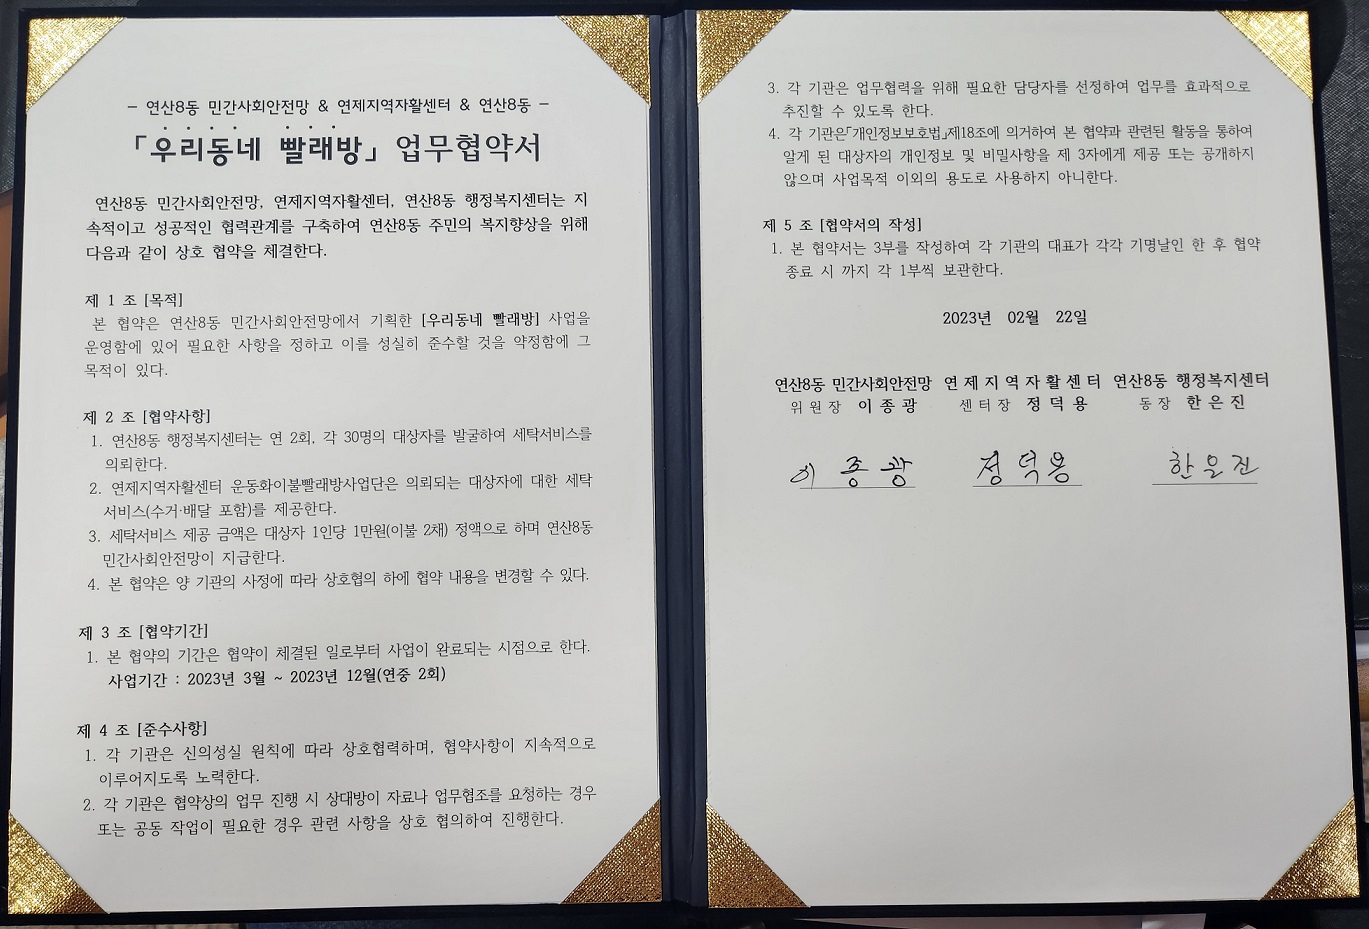 - 연산8동 민간사회안전망 & 연제지역자활센터 & 연산8동 -
「우리동네 빨래방」 업무협약서
연산8동 민간사회안전망, 연제지역자활센터, 연산8동 행정복지센터는 지
속적이고 성공적인 협력관계를 구축하여 연산8동 주민의 복지향상을 위해
다음과 같이 상호 협약을 체결한다.
제 1 조 [목적]
본 협약은 연산8동 민간사회안전망에서 기획한 [우리동네 빨래방] 사업을
운영함에 있어 필요한 사항을 정하고 이를 성실히 준수할 것을 약정함에 그
목적이 있다.
제 2 조 [협약사항]
1. 연산8동 행정복지센터는 연 2회, 각 30명의 대상자를 발굴하여 세탁서비스를
의뢰한다.
2. 연제지역자활센터 운동화이불빨래방사업단은 의뢰되는 대상자에 대한 세탁
서비스(수거·배달 포함)를 제공한다.
3. 세탁서비스 제공 금액은 대상자 1인당 1만원(이불 2채) 정액으로 하며 연산8동
민간사회안전망이 지급한다.
4. 본 협약은 양 기관의 사정에 따라 상호협의 하에 협약 내용을 변경할 수 있다.
제 3 조 [협약기간]
1. 본 협약의 기간은 협약이 체결된 일로부터 사업이 완료되는 시점으로 한다.
사업기간 : 2023년 3월 ~ 2023년 12월(연중 2회)
제 4 조 [준수사항]
1. 각 기관은 신의성실 원칙에 따라 상호협력하며, 협약사항이 지속적으로
이루어지도록 노력한다.
2. 각 기관은 협약상의 업무 진행 시 상대방이 자료나 업무협조를 요청하는 경우
또는 공동 작업이 필요한 경우 관련 사항을 상호 협의하여 진행한다.
3. 각 기관은 업무협력을 위해 필요한 담당자를 선정하여 업무를 효과적으로
추진할 수 있도록 한다.
4. 각 기관은「개인정보보호법」제18조에 의거하여 본 협약과 관련된 활동을 통하여
알게 된 대상자의 개인정보 및 비밀사항을 제 3자에게 제공 또는 공개하지
않으며 사업목적 이외의 용도로 사용하지 아니한다.
제 5 조 [협약서의 작성]
1. 본 협약서는 3부를 작성하여 각 기관의 대표가 각각 기명날인 한 후 협약
종료 시 까지 각 1부씩 보관한다.
2023년 02월 22일
연산8동 민간사회안전망 연제지역자활센터 연산8동 행정복지센터
위원장 이종광 센터장 정덕용 동장 한은진
이종광 정덕용 한은진